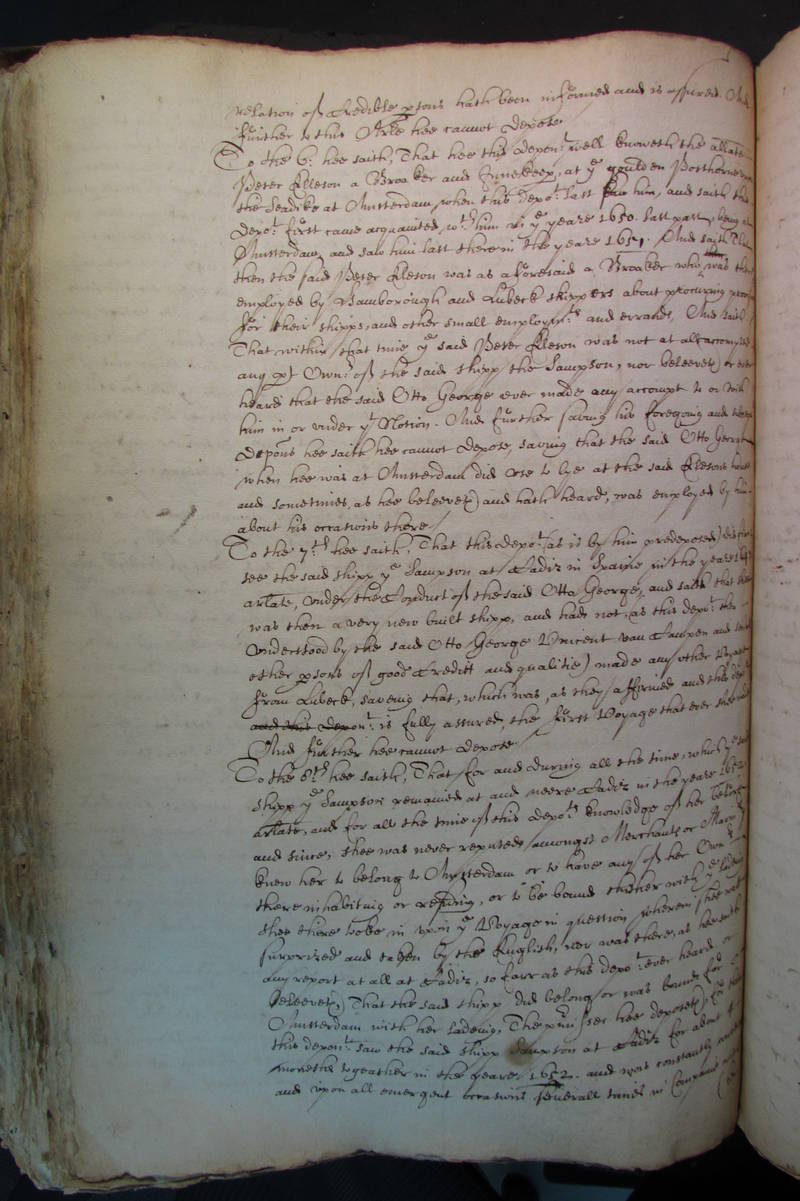 relation of Credible psons hath been informed and is assured. And
further to this Arle hee cannot depose.
To the 6:th hee saith, That hee this depon:t well knoweth the allate
Peter Eleson a Broaker and Innekeep, at ye goulden Posthorne
the Seadike at Amsterdam, when this depo:t last saw him, and saith this
depo:t first came acquainted wth him in ye yeare 1650. last past, being at
Amsterdam, and saw him last there in the yeare 1651. And saith That
then the said Peter Eleson was as aforesaid a Broaker who was then
employed by Hamborough and Lubeck skippers about procuring
for their shipps, and other small employmts and errands, And saith
That within that time ye said Peter Eleson was not at all accompted
any pt Owner of the said shipp the Sampson, nor beleeveth or ever
heard that the said Otto George ever made any accompt to or with
him in or under yt Notion. And further saving his foregoing
depons hee saith hee cannot depose, saving that the said Otto George
when hee was at Amsterdam did use to lye at the said Elesons house
and sometimes, as hee beleeveth and hath heard, was employed by him
about his occasions there.
To the 7:th hee saith, That this depo:t (as is by him predeposed) did
see the said shipp ye Sampson at Cadiz in Spaine in the yeare
arlate, under the Conduct of the said Otto George, and saith that shee
was then a very new built shipp, and had not, as this depo:t then
understood by the said Otto George Vincent van Campen and
other psons of good Creditt and qualitie) made any other Voyage
from Lubeck, saveing that, which was, as they affirmed and this
and this depon:t is fully assured, the first Voyage that ever shee made
And further hee cannot depose
To the 8:th hee saith, That for and during all the time, which ye said
shipp ye Sampson remained at and neere Cadiz in the yeare 1652
arlate, and for all the time of this depo:ts knowledge of her before
and since, shee was never reputed amongst Merchants or
knew her to belong to Amsterdam or to have any of her Owners
there inhabiting or residing, or to be bound thither with ye lading
shee there tooke in upon ye Voyage in question wherein shee was
surprized and taken by the English, nor was there, as hee
any report at all at Cadiz, so farr as this depo:t ever heard or
beleeveth, That the said shipp did belong or was bound for
Amsterdam with her ladeing, The premisses hee deposeth
this depon:t saw the said shipp Sampson at Cadiz for about
moneths togeather in the yeare. 1652. and was constantly
and upon all emergent occasions severall times in Companie